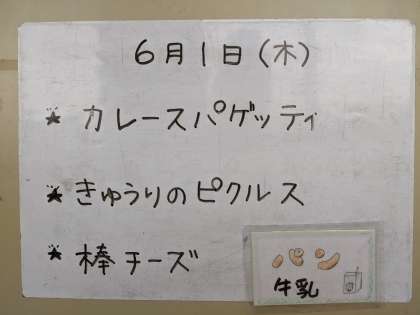 6月1日(木)
★ カレースパゲッティ
★ きゅうりのピクルス
★ 棒チーズ
パン
牛乳